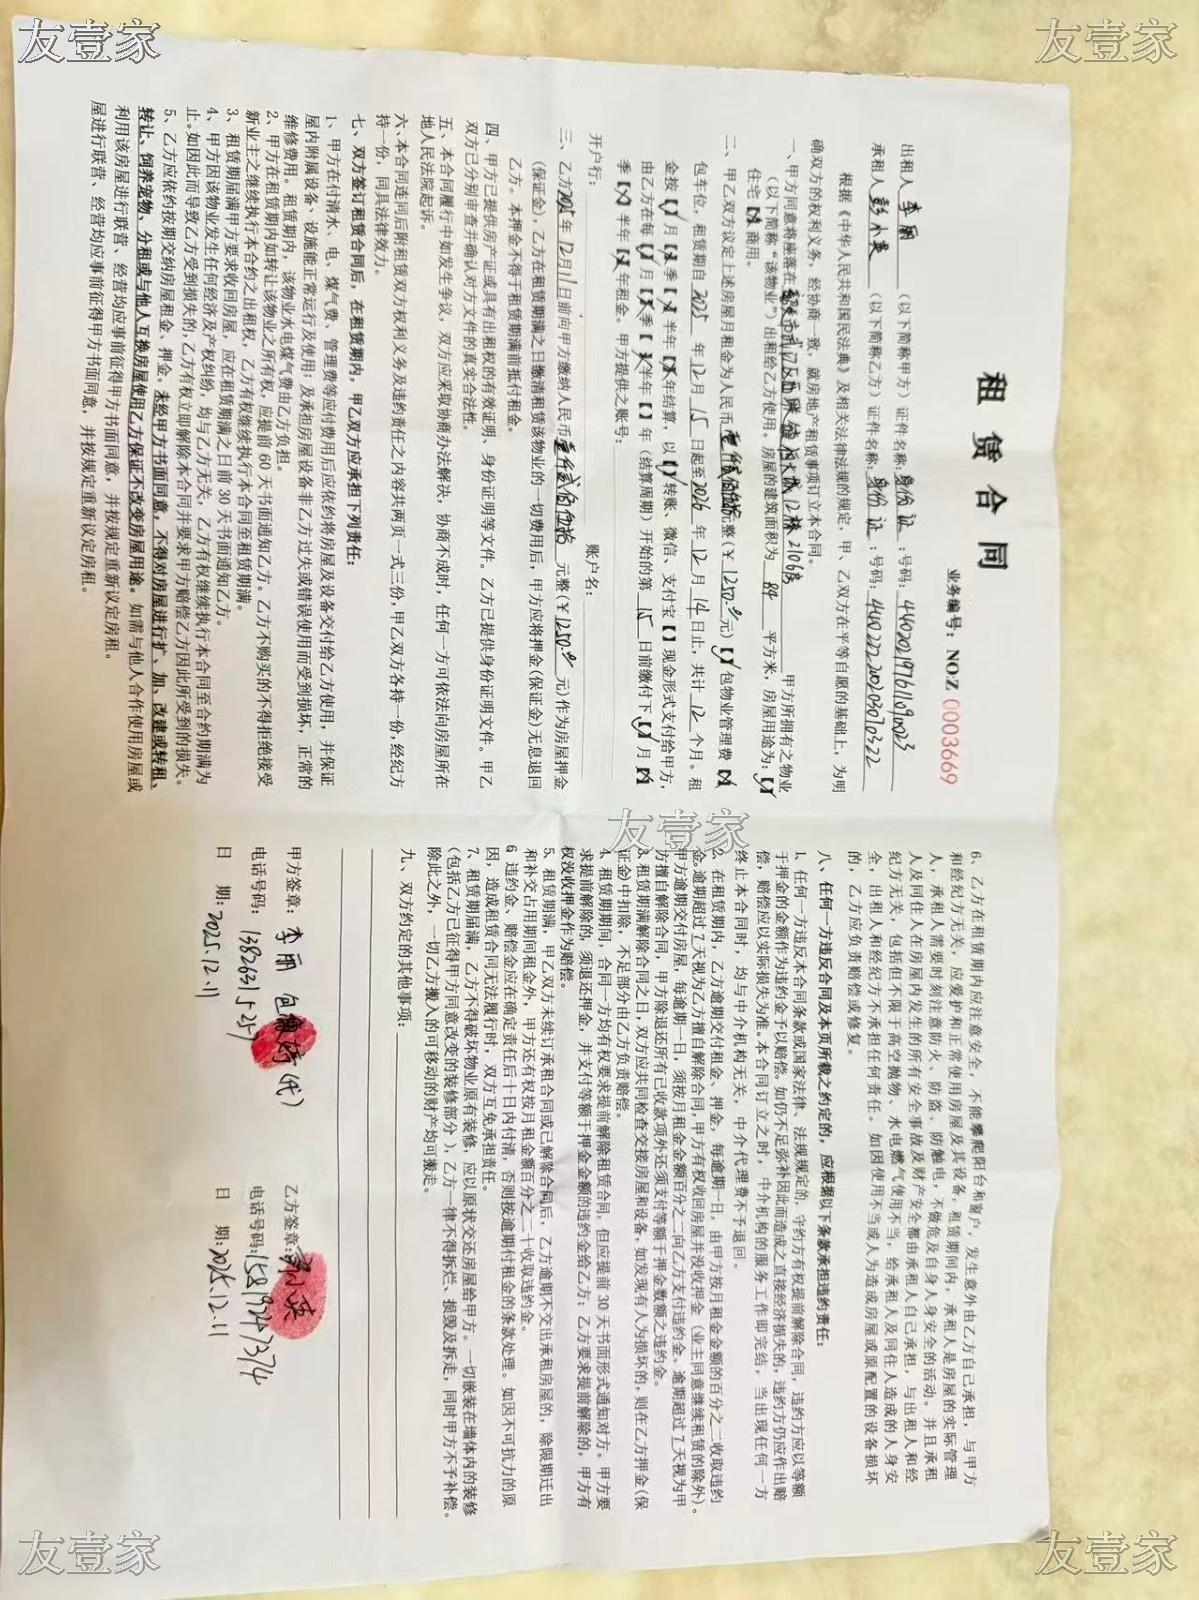 友壹家
友壹家
租赁合同
业务编号：NO:Z 0003669
出租人 李丽 （以下简称甲方）证件名称：身份证；号码：
承租人 彭小英 （以下简称乙方）证件名称：身份证；号码：440222200203070322
根据《中华人民共和国民法典》及相关法律法规的规定，甲、乙双方在平等自愿的基础上，为明
确双方的权利义务，经协商一致，就房地产租赁事项订立本合同。
一、甲方同意将座落在 12栋2106房 甲方所拥有之物业
（以下简称“该物业”）出租给乙方使用。房屋的建筑面积为 平方米，房屋用途为：【√】
住宅【×】商用。
二、甲乙双方议定上述房屋月租金为人民币 壹仟贰佰伍拾 元整（￥1250.00元）【√】包物业管理费【×】
包车位，租赁期自 2025 年 12 月 15 日起至 2026 年 12 月 14 日止，共计 12 个月。租
金按【√】月【×】季【×】半年【×】年结算，以【√】转账、微信、支付宝【 】现金形式支付给甲方，
由乙方在每【√】月【×】季【×】半年【 】年（结算周期）开始的第 15 日前缴付下【√】月【×】
季【×】半年【×】年租金。甲方提供之账号：
开户行： 账户名：
三、乙方2025年12月11日前向甲方缴纳人民币 壹仟贰佰伍拾 元整（￥1250.00 元）作为房屋押金
（保证金），乙方在租赁期满之日缴清租赁该物业的一切费用后，甲方应将押金（保证金）无息退回
乙方。本押金不得于租赁期满前抵付租金。
四、甲方已提供房产证或具有出租权的有效证明、身份证明等文件。乙方已提供身份证明文件。甲乙
双方已分别审查并确认对方文件的真实合法性。
五、本合同履行中如发生争议，双方应采取协商办法解决，协商不成时，任何一方可依法向房屋所在
地人民法院起诉。
六、本合同连同后附租赁双方权利义务及违约责任之内容共两页一式三份，甲乙双方各持一份，经纪方
持一份，同具法律效力。
七、双方签订租赁合同后，在租赁期内，甲乙双方应承担下列责任：
1、甲方在付清水、电、煤气费、管理费等应付费用后应依约将房屋及设备交付给乙方使用，并保证
屋内附属设备、设施能正常运行及使用；及承担房屋设备非乙方过失或错误使用而受到损坏，正常的
维修费用。租赁期内，该物业水电煤气费由乙方负担。
2、甲方在租赁期内如转让该物业之所有权，应提前60天书面通知乙方。乙方不购买的不得拒绝接受
新业主之继续执行本合约之出租权，乙方有权继续执行本合同至租赁期满。
3、租赁期届满甲方要求收回房屋，应在租赁期满之日前30天书面通知乙方。
4、甲方因该物业发生任何经济及产权纠纷，均与乙方无关，乙方有权继续执行本合同至合约期满为
止。如因此而导致乙方受到损失的，乙方有权立即解除本合同并要求甲方赔偿乙方因此所受到的损失。
5、乙方应依约按期交纳房屋租金、押金。未经甲方书面同意，不得对房屋进行扩、加、改建或转租、
转让、饲养宠物、分租或与他人互换房屋使用乙方保证不改变房屋用途。如需与他人合作使用房屋或
利用该房屋进行联营、经营均应事前征得甲方书面同意，并按规定重新议定房租。
屋进行联营、经营均应事前征得甲方书面同意，并按规定重新议定房租。
友壹家
6、乙方在租赁期内应注意安全，不能攀爬阳台和窗户，发生意外由乙方自己承担，与甲方
和经纪方无关，应爱护和正常使用房屋及其设备，租赁期间内，承租人是房屋的实际管理
人，承租人需要时刻注意防火、防盗、防触电，不做危及自身人身安全的活动。并且承租
人及同住人在房屋内发生的所有安全事故及财产安全都由承租人自己承担，与出租人和经
纪方无关，包括但不限于高空抛物、水电燃气使用不当，给承租人及同住人造成的人身安
全，出租人和经纪方不承担任何责任。如因使用不当或人为造成房屋或原配置的设备损坏
的，乙方应负责赔偿或修复。
八、任何一方违反合同及本页所载之约定的，应根据以下条款承担违约责任：
1、任何一方违反本合同条款或国家法律、法规规定的，守约方有权提前解除合同，违约方应以等额
于押金的金额作为违约金予以赔偿。如仍不足弥补因此而造成之直接经济损失的，违约方仍应作出赔
偿，赔偿应以实际损失为准。本合同订立之时，中介机构的服务工作即完结，当出现任何一方
终止本合同时，均与中介机构无关，中介代理费不予退回。
2、在租赁期内，乙方逾期交付租金、押金，每逾期一日，由甲方按月租金金额的百分之二收取违约
金。逾期超过7天视为乙方擅自解除合同，甲方有权收回房屋并没收押金（业主同意继续租赁的除外）。
甲方逾期交付房屋，每逾期一日，须按月租金金额百分之二向乙方支付违约金。逾期超过7天视为甲
方擅自解除合同，甲方除退还所有已收款项外还须支付等额于押金数额之违约金。
3、租赁期满解除合同之日，双方应共同检查交接房屋和设备，如发现有人为损坏的，则在乙方押金（保
证金）中扣除，不足部分由乙方负责赔偿。
4、租赁期期间，合同一方均有权要求提前解除租赁合同，但应提前30天书面形式通知对方。甲方要
求提前解除的，须退还押金，并支付等额于押金金额的违约金给乙方；乙方要求提前解除的，甲方有
权没收押金作为赔偿。
5、租赁期满，甲乙双方未续订承租合同或已解除合同后，乙方逾期不交出承租房屋的，除限期迁出
和补交占用期间租金外，甲方还有权按月租金额百分之二十收取违约金。
6、违约金、赔偿金应在确定责任后十日内付清，否则按逾期付租金的条款处理。如因不可抗力的原
因，造成租赁合同无法履行时，双方互免承担责任。
7、租赁期届满，乙方不得破坏物业原有装修，应以原状交还房屋给甲方。一切嵌装在墙体内的装修
（包括乙方已征得甲方同意改变的装修部分），乙方一律不得拆烂、损毁及拆走，同时甲方不予补偿。
除此之外，一切乙方搬入的可移动的财产均可搬走。
九、双方约定的其他事项：
甲方签章：李丽 包 婷（代） 乙方签章：彭小英
电话号码：13826315257 电话号码：15819247374
日 期：2025.12.11 日 期：2025.12.11
友壹家
友壹家